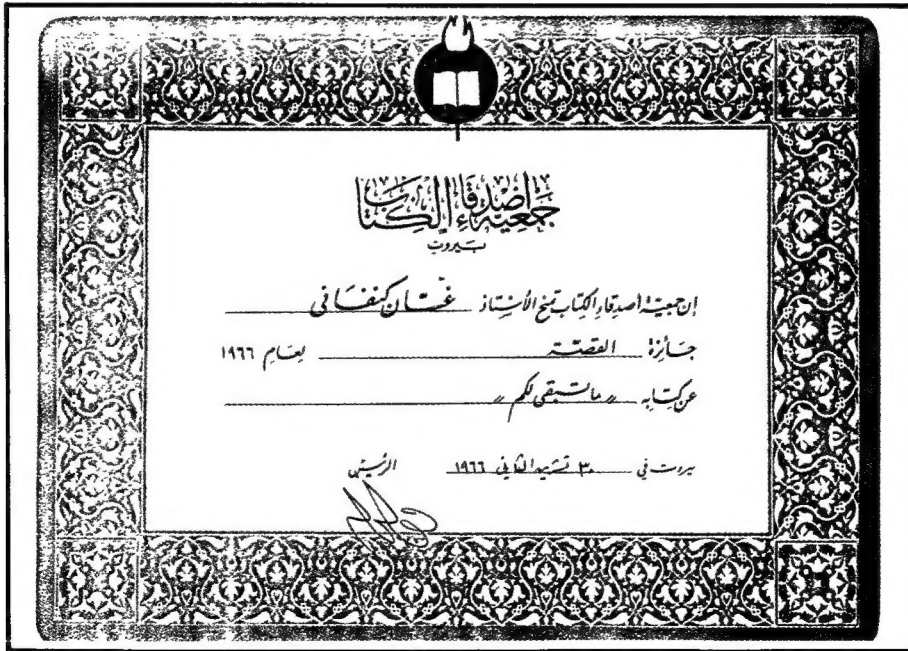 جمعية أصدقاء الكتاب
بيروت
إن جمعية أصدقاء الكتاب تمنح الأستاذ غسان كنفاني
جائزة القصة لعام ١٩٦٦
عن كتابه " ما تبقى لكم "
بيروت في ٣٠ تشرين الثاني ١٩٦٦ الرئيس